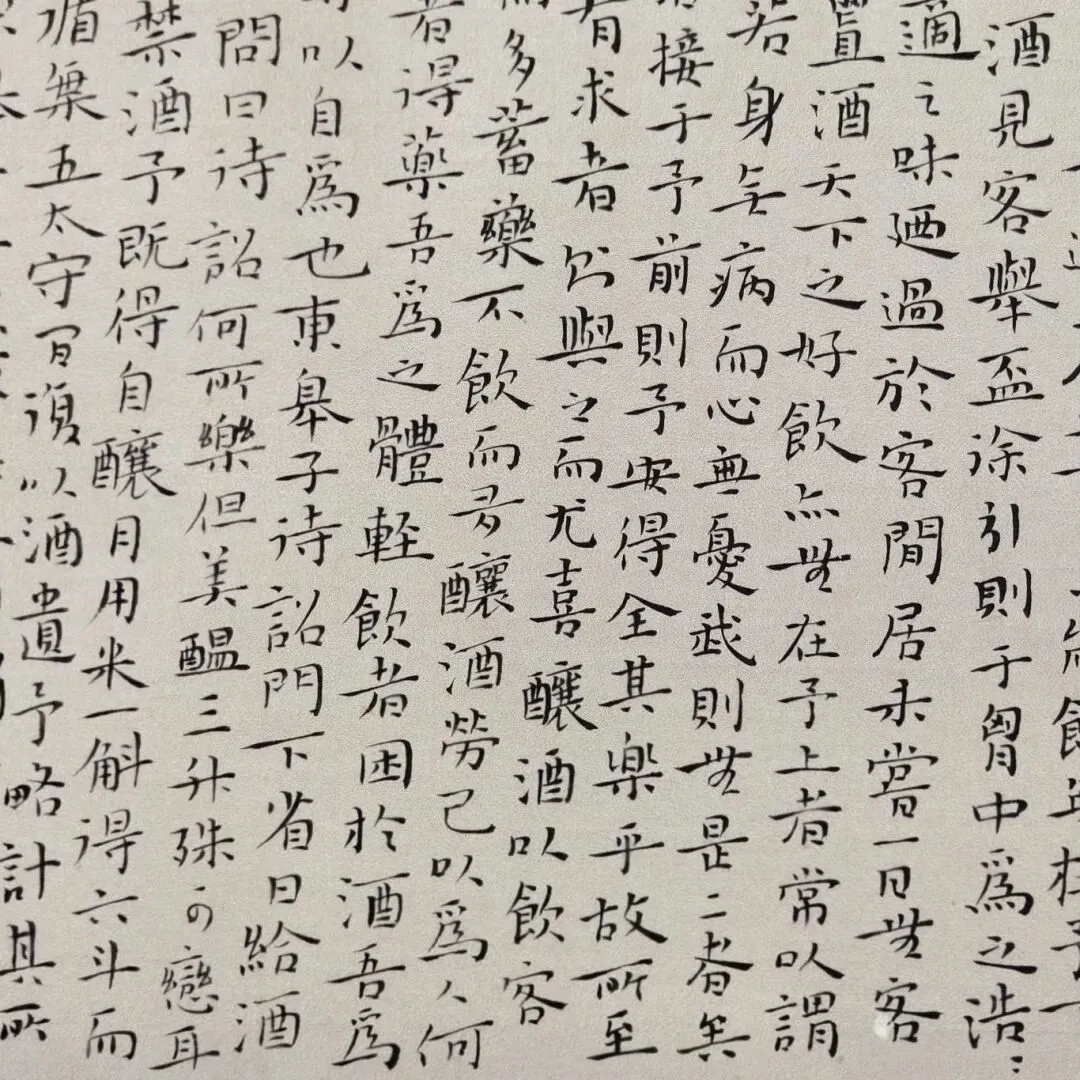 酒見客舉盃徐引則于胷中為之浩〻
適之味廼過於客閒居未嘗一日無客
置酒天下之好飲亦無在予上者常以謂
若身無病而心無憂我則無是二者矣
接于予前則予安得全其樂乎故所至
有求者則與之而尤喜釀酒以飲客
多蓄藥不飲而多釀酒勞己以為人何
者得藥吾為之體輕飲者困於酒吾為
以自為也東皐子待詔門下省日給酒
問曰待詔何所樂但美醞三升殊可戀耳
禁酒予既得自釀月用米一斛得六斗而
循梅五太守間復以酒遺予略計其所